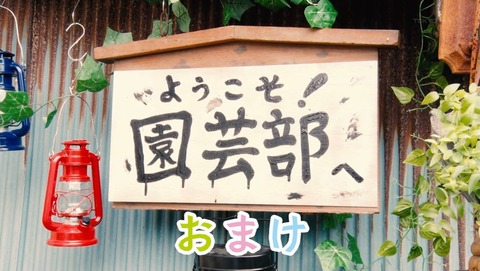 ようこそ!
園芸部へ
おまけ